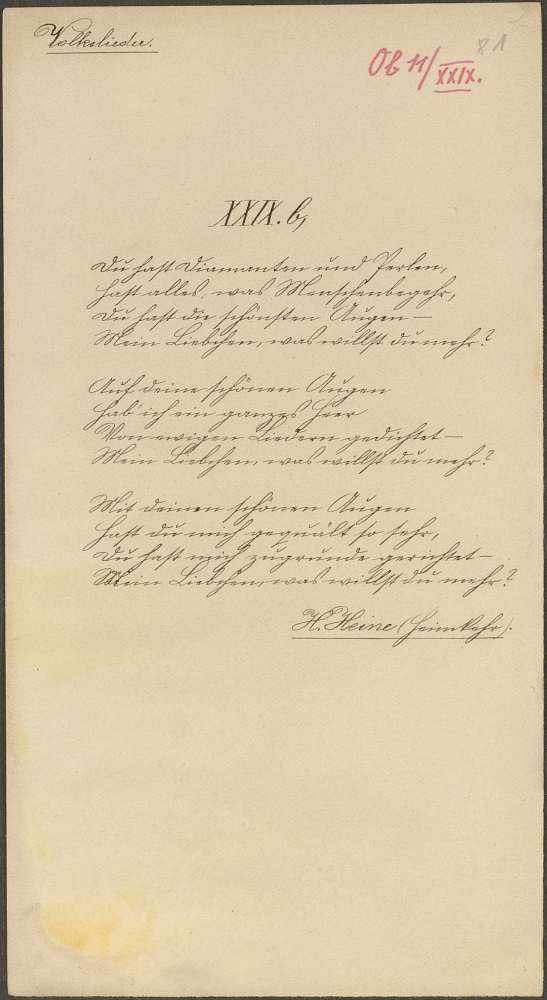 Volkslieder.
81
Ob 11/XXIX.
XXIX. b,
Du hast Diamanten und Perlen,
Hast alles, was Menschenbegehr,
Du hast die schönsten Augen –
Mein Liebchen, was willst du mehr?
Auf deine schönen Augen
Hab ich ein ganzes Heer
Von ewigen Liedern gedichtet –
Mein Liebchen, was willst du mehr?
Mit deinen schönen Augen
Hast du mich gequält so sehr,
Du hast mich zugrunde gerichtet –
Mein Liebchen, was willst du mehr?
H. Heine (Heimkehr).